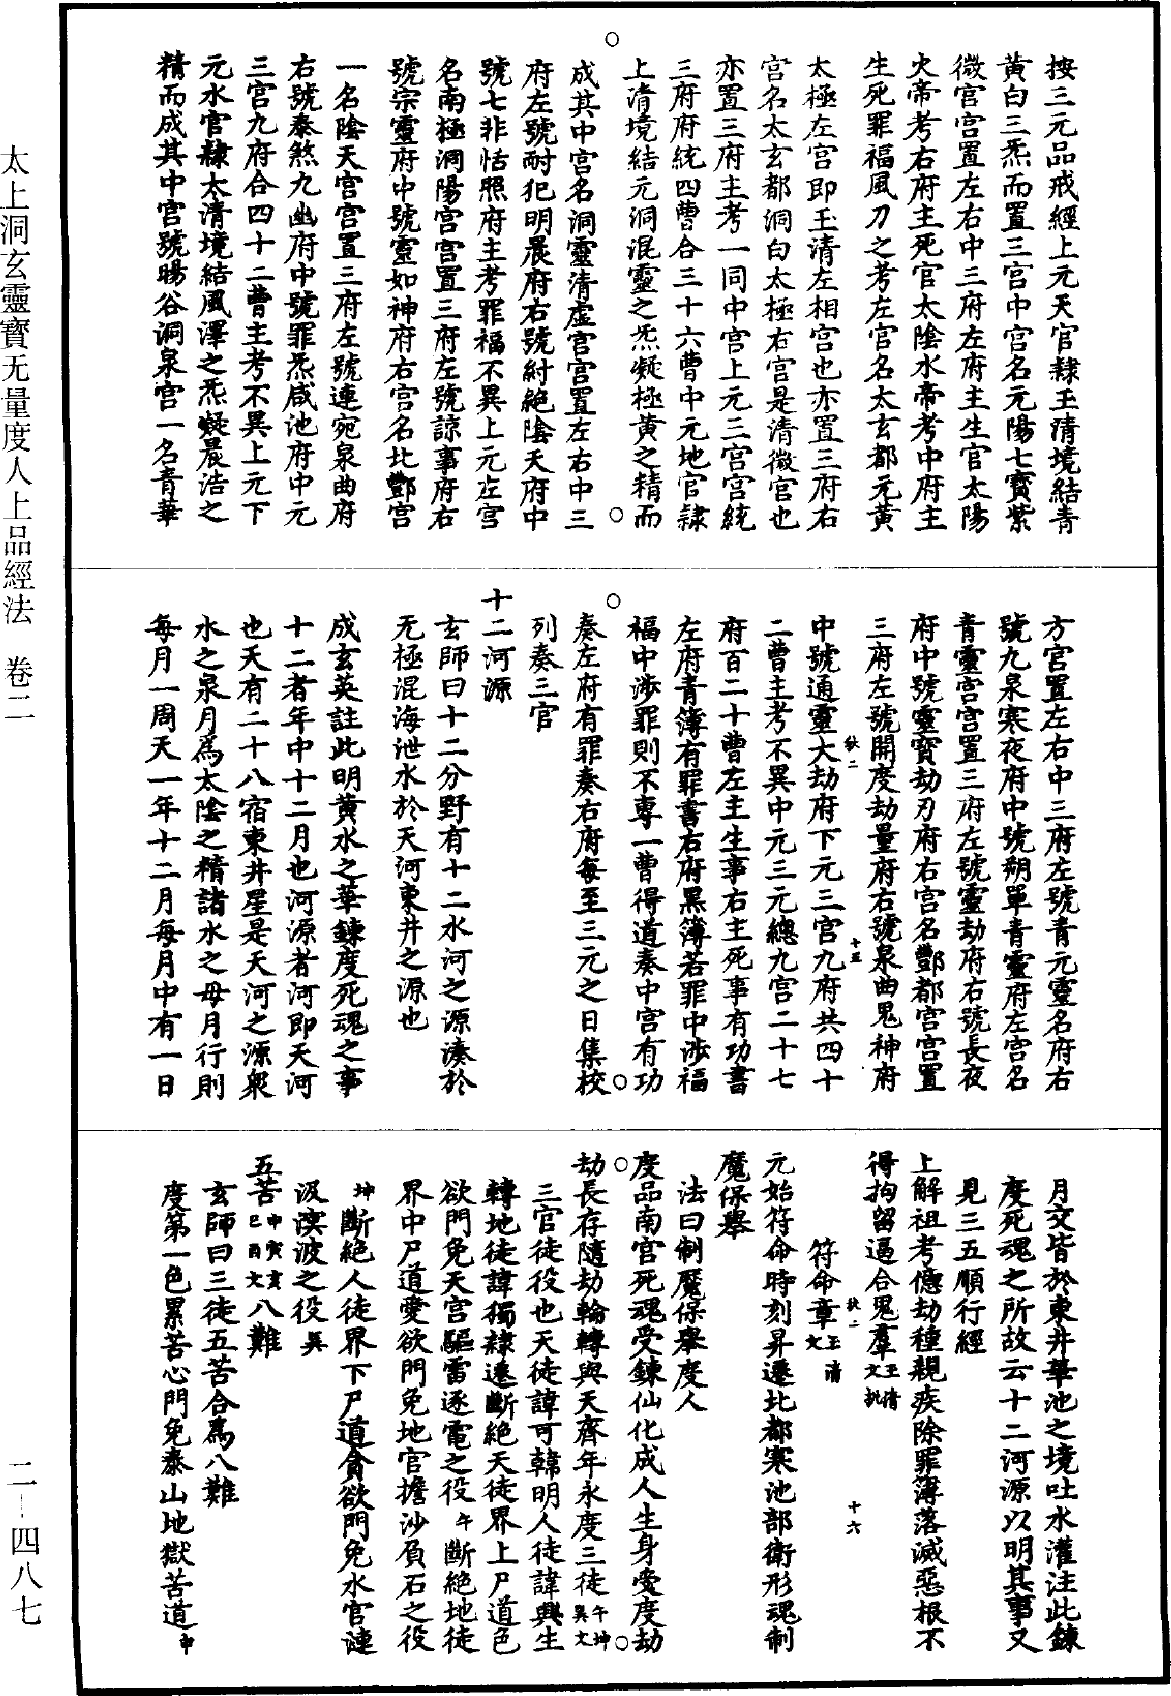 太上洞玄靈寶无量度人上品經法　卷二
二—四八七
按三元品戒經上元天官隸玉清境結青
黃白三炁而置三宮中宮名元陽七寶紫
微宮宮置左右中三府左府主生官太陽
火帝考右府主死官太陰水帝考中府主
生死罪福風刀之考左宮名太玄都元黃
太極左宮即玉清左相宮也亦置三府右
宮名太玄都洞白太極右宮是清微宮也
亦置三府主考一同中宮上元三宮宮統
三府府統四曹合三十六曹中元地官隸
上清境結元洞混靈之炁凝極黃之精而
成其中宮名洞靈清虛宮宮置左右中三
府左號耐犯明晨府右號紂絕陰天府中
號七非恬照府主考罪福不異上元左宮
名南極洞陽宮宮置三府左號諒事府右
號宗靈府中號靈如神府右宮名北酆宮
一名陰天宮宮置三府左號連宛泉曲府
右號泰煞九幽府中號罪炁咸池府中元
三宮九府合四十二曹主考不異上元下
元水官隸太清境結風澤之炁凝晨浩之
精而成其中宮號暘谷洞泉宮一名青華
方宮置左右中三府左號青元靈名府右
號九泉寒夜府中號朔單青靈府左宮名
青靈宮宮置三府左號靈劫府右號長夜
府中號靈寶劫刃府右宮名酆都宮宮置
三府左號開度劫量府右號泉曲鬼神府
中號通靈大劫府下元三宮九府共四十
二曹主考不異中元三元總九宮二十七
府百二十曹左主生事右主死事有功書
左府青簿有罪書右府黑簿若罪中涉福
福中涉罪則不專一曹得道奏中宮有功
奏左府有罪奏右府每至三元之日集校
列奏三官
十二河源
玄師曰十二分野有十二水河之源湊於
无極混海泄水於天河東井之源也
成玄英註此明黃水之華鍊度死魂之事
十二者年中十二月也河源者河即天河
也天有二十八宿東井星是天河之源眾
水之泉月為太陰之精諸水之母月行則
每月一周天一年十二月每月中有一日
月交皆於東井華池之境吐水灌注此鍊
度死魂之所故云十二河源以明其事又
見三五順行經
上解祖考億劫種親疾除罪簿落滅惡根不
得拘留逼合鬼羣
符命章
元始符命時刻昇遷北都寒池部衛形魂制
魔保舉
法曰制魔保舉度人
度品南宮死魂受鍊仙化成人生身受度劫
劫長存隨劫輪轉與天齊年永度三徒
三官徒役也天徒諱可韓明人徒諱與生
轉地徒諱獨隸遷斷絕天徒界上尸道色
欲門免天宮驅雷逐電之役午斷絕地徒
界中尸道愛欲門免地官擔沙負石之役
坤斷絕人徒界下尸道貪欲門免水官漣
汲溟波之役巽
五苦八難
玄師曰三徒五苦合為八難
度第一色累苦心門免泰山地獄苦道